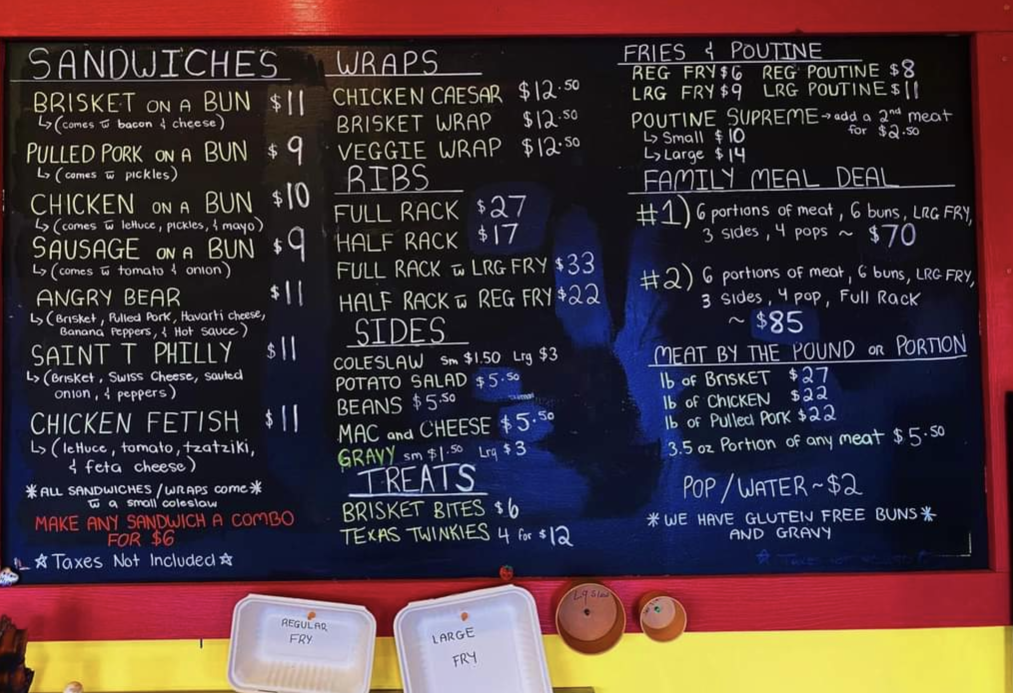 SANDWICHES
BRISKET ON A BUN $11
↳(comes w bacon & cheese)
PULLED PORK ON A BUN $9
↳(comes w pickles)
CHICKEN ON A BUN $10
↳(comes w lettuce, pickles, & mayo)
SAUSAGE ON A BUN $9
↳(comes w tomato & onion)
ANGRY BEAR $11
↳(Brisket, Pulled Pork, Havarti cheese,
Banana Peppers, & Hot Sauce)
SAINT T PHILLY $11
↳(Brisket, Swiss Cheese, sauted
onion, & peppers)
CHICKEN FETISH $11
↳(lettuce, tomato, tzatziki,
& feta cheese)
*ALL SANDWICHES/WRAPS come*
w a small coleslaw
MAKE ANY SANDWICH A COMBO
FOR $6
☆Taxes Not Included☆
WRAPS
CHICKEN CAESAR $12.50
BRISKET WRAP $12.50
VEGGIE WRAP $12.50
RIBS
FULL RACK $27
HALF RACK $17
FULL RACK w LRG FRY $33
HALF RACK w REG FRY $22
SIDES
COLESLAW Sm $1.50 Lrg $3
POTATO SALAD $5.50
BEANS $5.50
MAC and CHEESE $5.50
GRAVY sm $1.50 Lrg $3
TREATS
BRISKET BITES $6
TEXAS TWINKIES 4 for $12
FRIES & POUTINE
REG FRY $6 REG POUTINE $8
LRG FRY $9 LRG POUTINE $11
POUTINE SUPREME→add a 2nd meat
for $2.50
↳Small $10
↳Large $14
FAMILY MEAL DEAL
#1) 6 portions of meat, 6 buns, LRG FRY,
3 sides, 4 pops ~ $70
#2) 6 portions of meat, 6 buns, LRG FRY,
3 sides, 4 pop, Full Rack
~ $85
MEAT BY THE POUND OR PORTION
lb of BRISKET $27
lb of CHICKEN $22
lb of Pulled Pork $22
3.5 oz Portion of any meat $5.50
POP/WATER ~ $2
*WE HAVE GLUTEN FREE BUNS*
AND GRAVY
REGULAR
FRY
LARGE
FRY
Lg Slaw